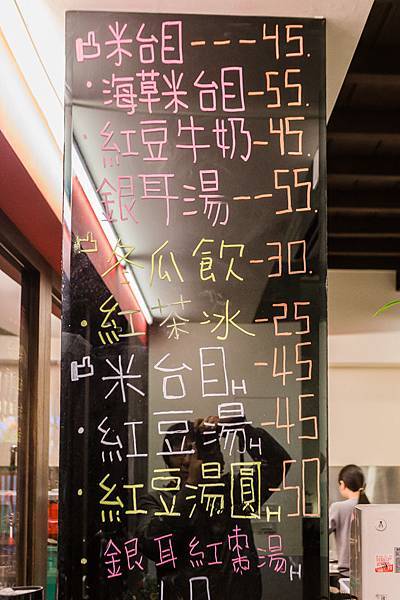 米台目---45.
海草米台目-55.
紅豆牛奶-45.
銀耳湯--55.
冬瓜飲-30.
紅茶冰-25
米台目H-45
紅豆湯H-45
紅豆湯圓H-50
銀耳紅棗湯H